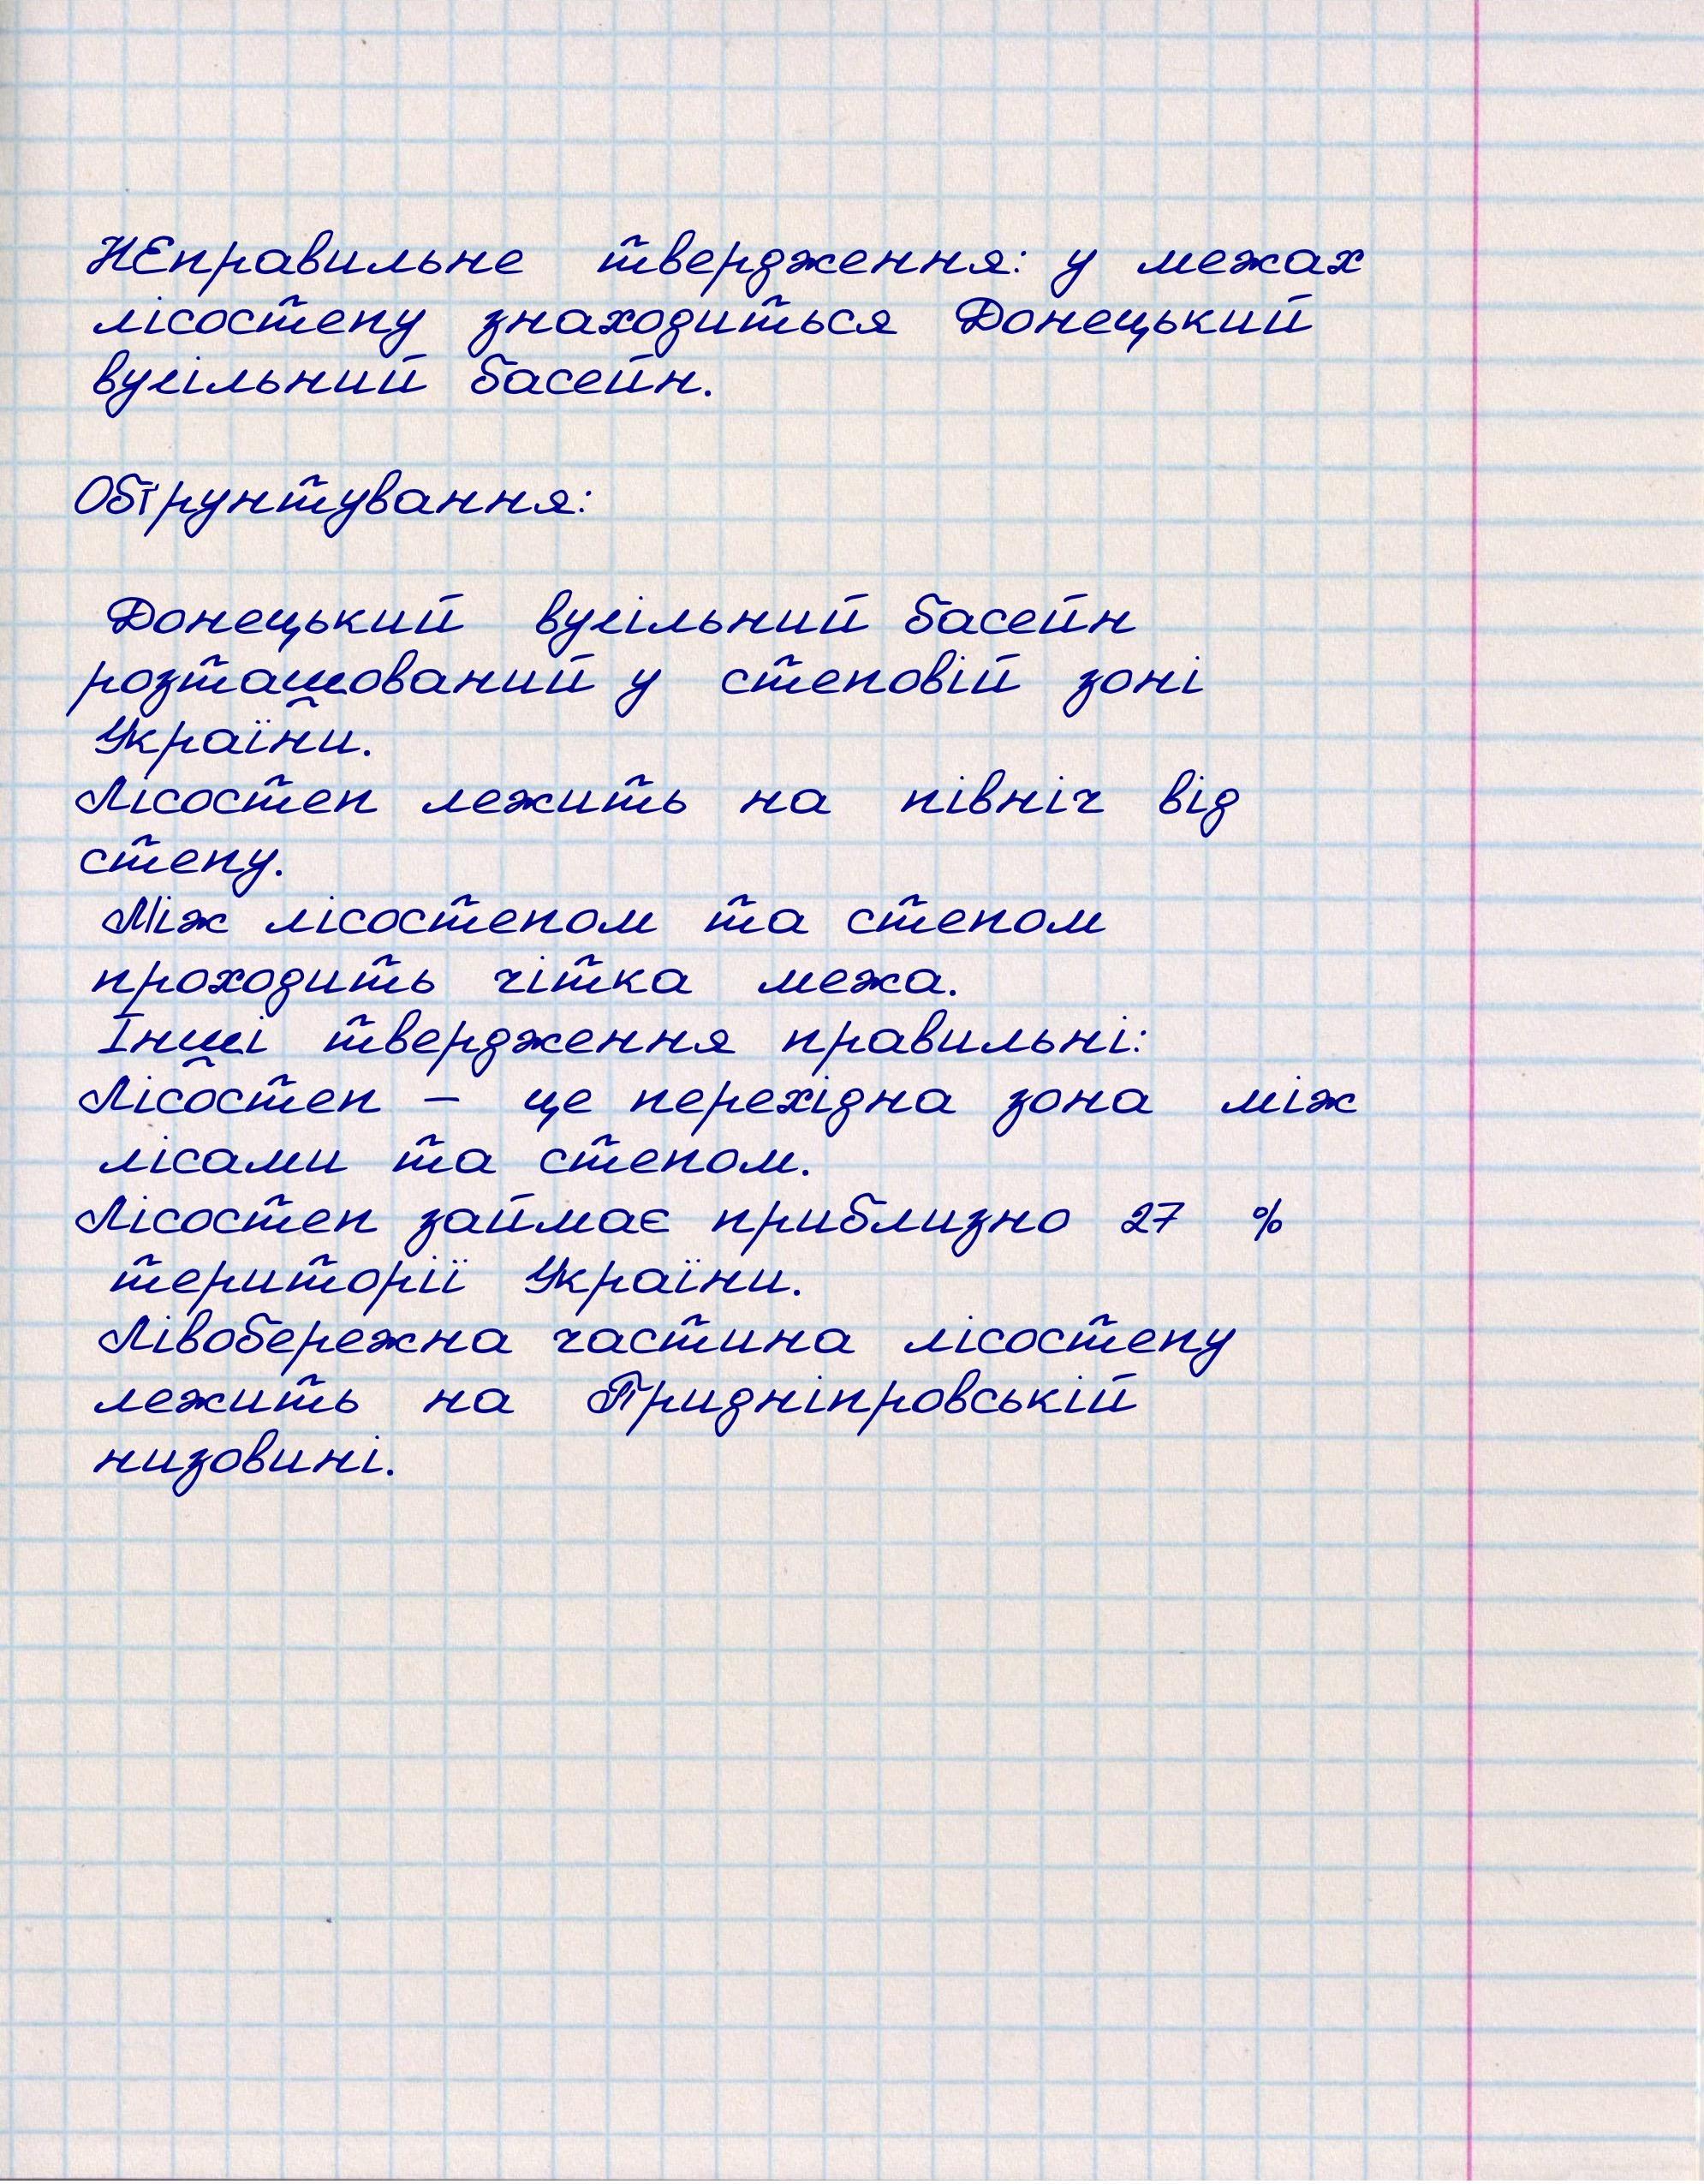 НЕправильне твердження: у межах
лісостепу знаходиться Донецький
вугільний басейн.
Обґрунтування:
Донецький вугільний басейн
розташований у степовій зоні
України.
Лісостеп лежить на північ від
степу.
Між лісостепом та степом
проходить чітка межа.
Інші твердження правильні:
Лісостеп – це перехідна зона між
лісами та степом.
Лісостеп займає приблизно 27 %
території України.
Лівобережна частина лісостепу
лежить на Придніпровській
низовині.